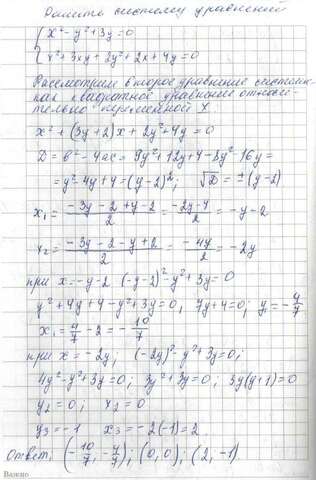 Решить систему уравнений
{ x² - y² + 3y = 0
x² + 3xy + 2y² + 2x + 4y = 0
Рассмотрим второе уравнение системы
как квадратное уравнение относи-
тельно переменной x
x² + (3y + 2)x + 2y² + 4y = 0
D = b² - 4ac = 9y² + 12y + 4 - 8y² - 16y =
= y² - 4y + 4 = (y - 2)²; √D = ±(y - 2)
x₁ = (-3y - 2 + y - 2)/2 = (-2y - 4)/2 = -y - 2
x₂ = (-3y - 2 - y + 2)/2 = -4y/2 = -2y
при x = -y - 2 (-y - 2)² - y² + 3y = 0
y² + 4y + 4 - y² + 3y = 0, 7y + 4 = 0; y₁ = -4/7
x₁ = 4/7 - 2 = -10/7
при x = -2y; (-2y)² - y² + 3y = 0;
4y² - y² + 3y = 0; 3y² + 3y = 0; 3y(y + 1) = 0
y₂ = 0; x₂ = 0
y₃ = -1 x₃ = -2(-1) = 2
Ответ: (-10/7, -4/7); (0, 0); (2, -1).
Важно